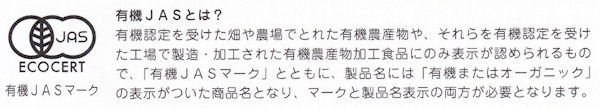 JAS
ECOCERT
有機JASマーク
有機JASとは？
有機認定を受けた畑や農場でとれた有機農産物や、それらを有機認定を受け
た工場で製造・加工された有機農産物加工食品にのみ表示が認められるもの
で、「有機JASマーク」とともに、製品名には「有機またはオーガニック」
の表示がついた商品名となり、マークと製品名表示の両方が必要となります。